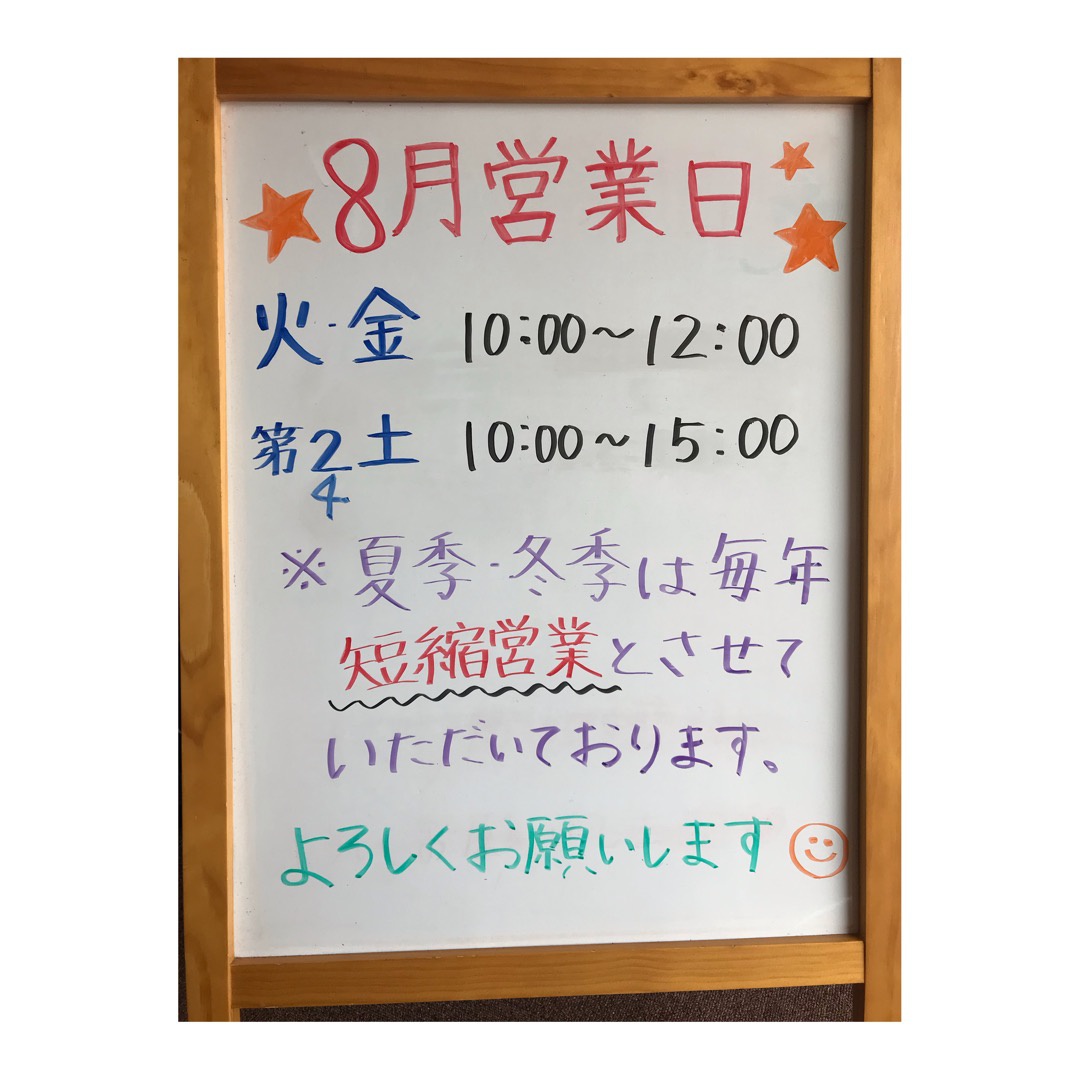 8月営業日
火・金 10:00～12:00
第2/4土 10:00～15:00
※夏季・冬季は毎年
短縮営業とさせて
いただいております。
よろしくお願いします